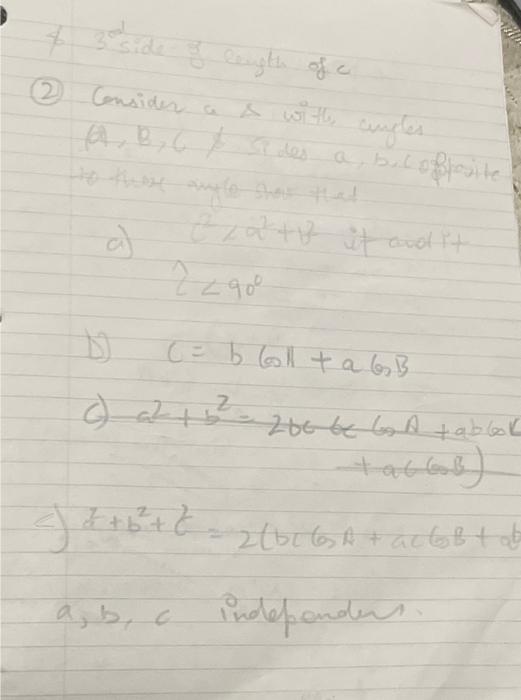 & 3rd side of length of c
② Consider a Δ with angles
A, B, C & sides a, b, c opposite
to these angle show that
a) c² < a² + b² if and if
Ĉ < 90°
b) c = b Cos A + a Cos B
c) a² + b² = 2bc Cos A + ab Cos
+ ac Cos B)
c) a² + b² + c² = 2(bc Cos A + ac Cos B + ab
a, b, c independent.